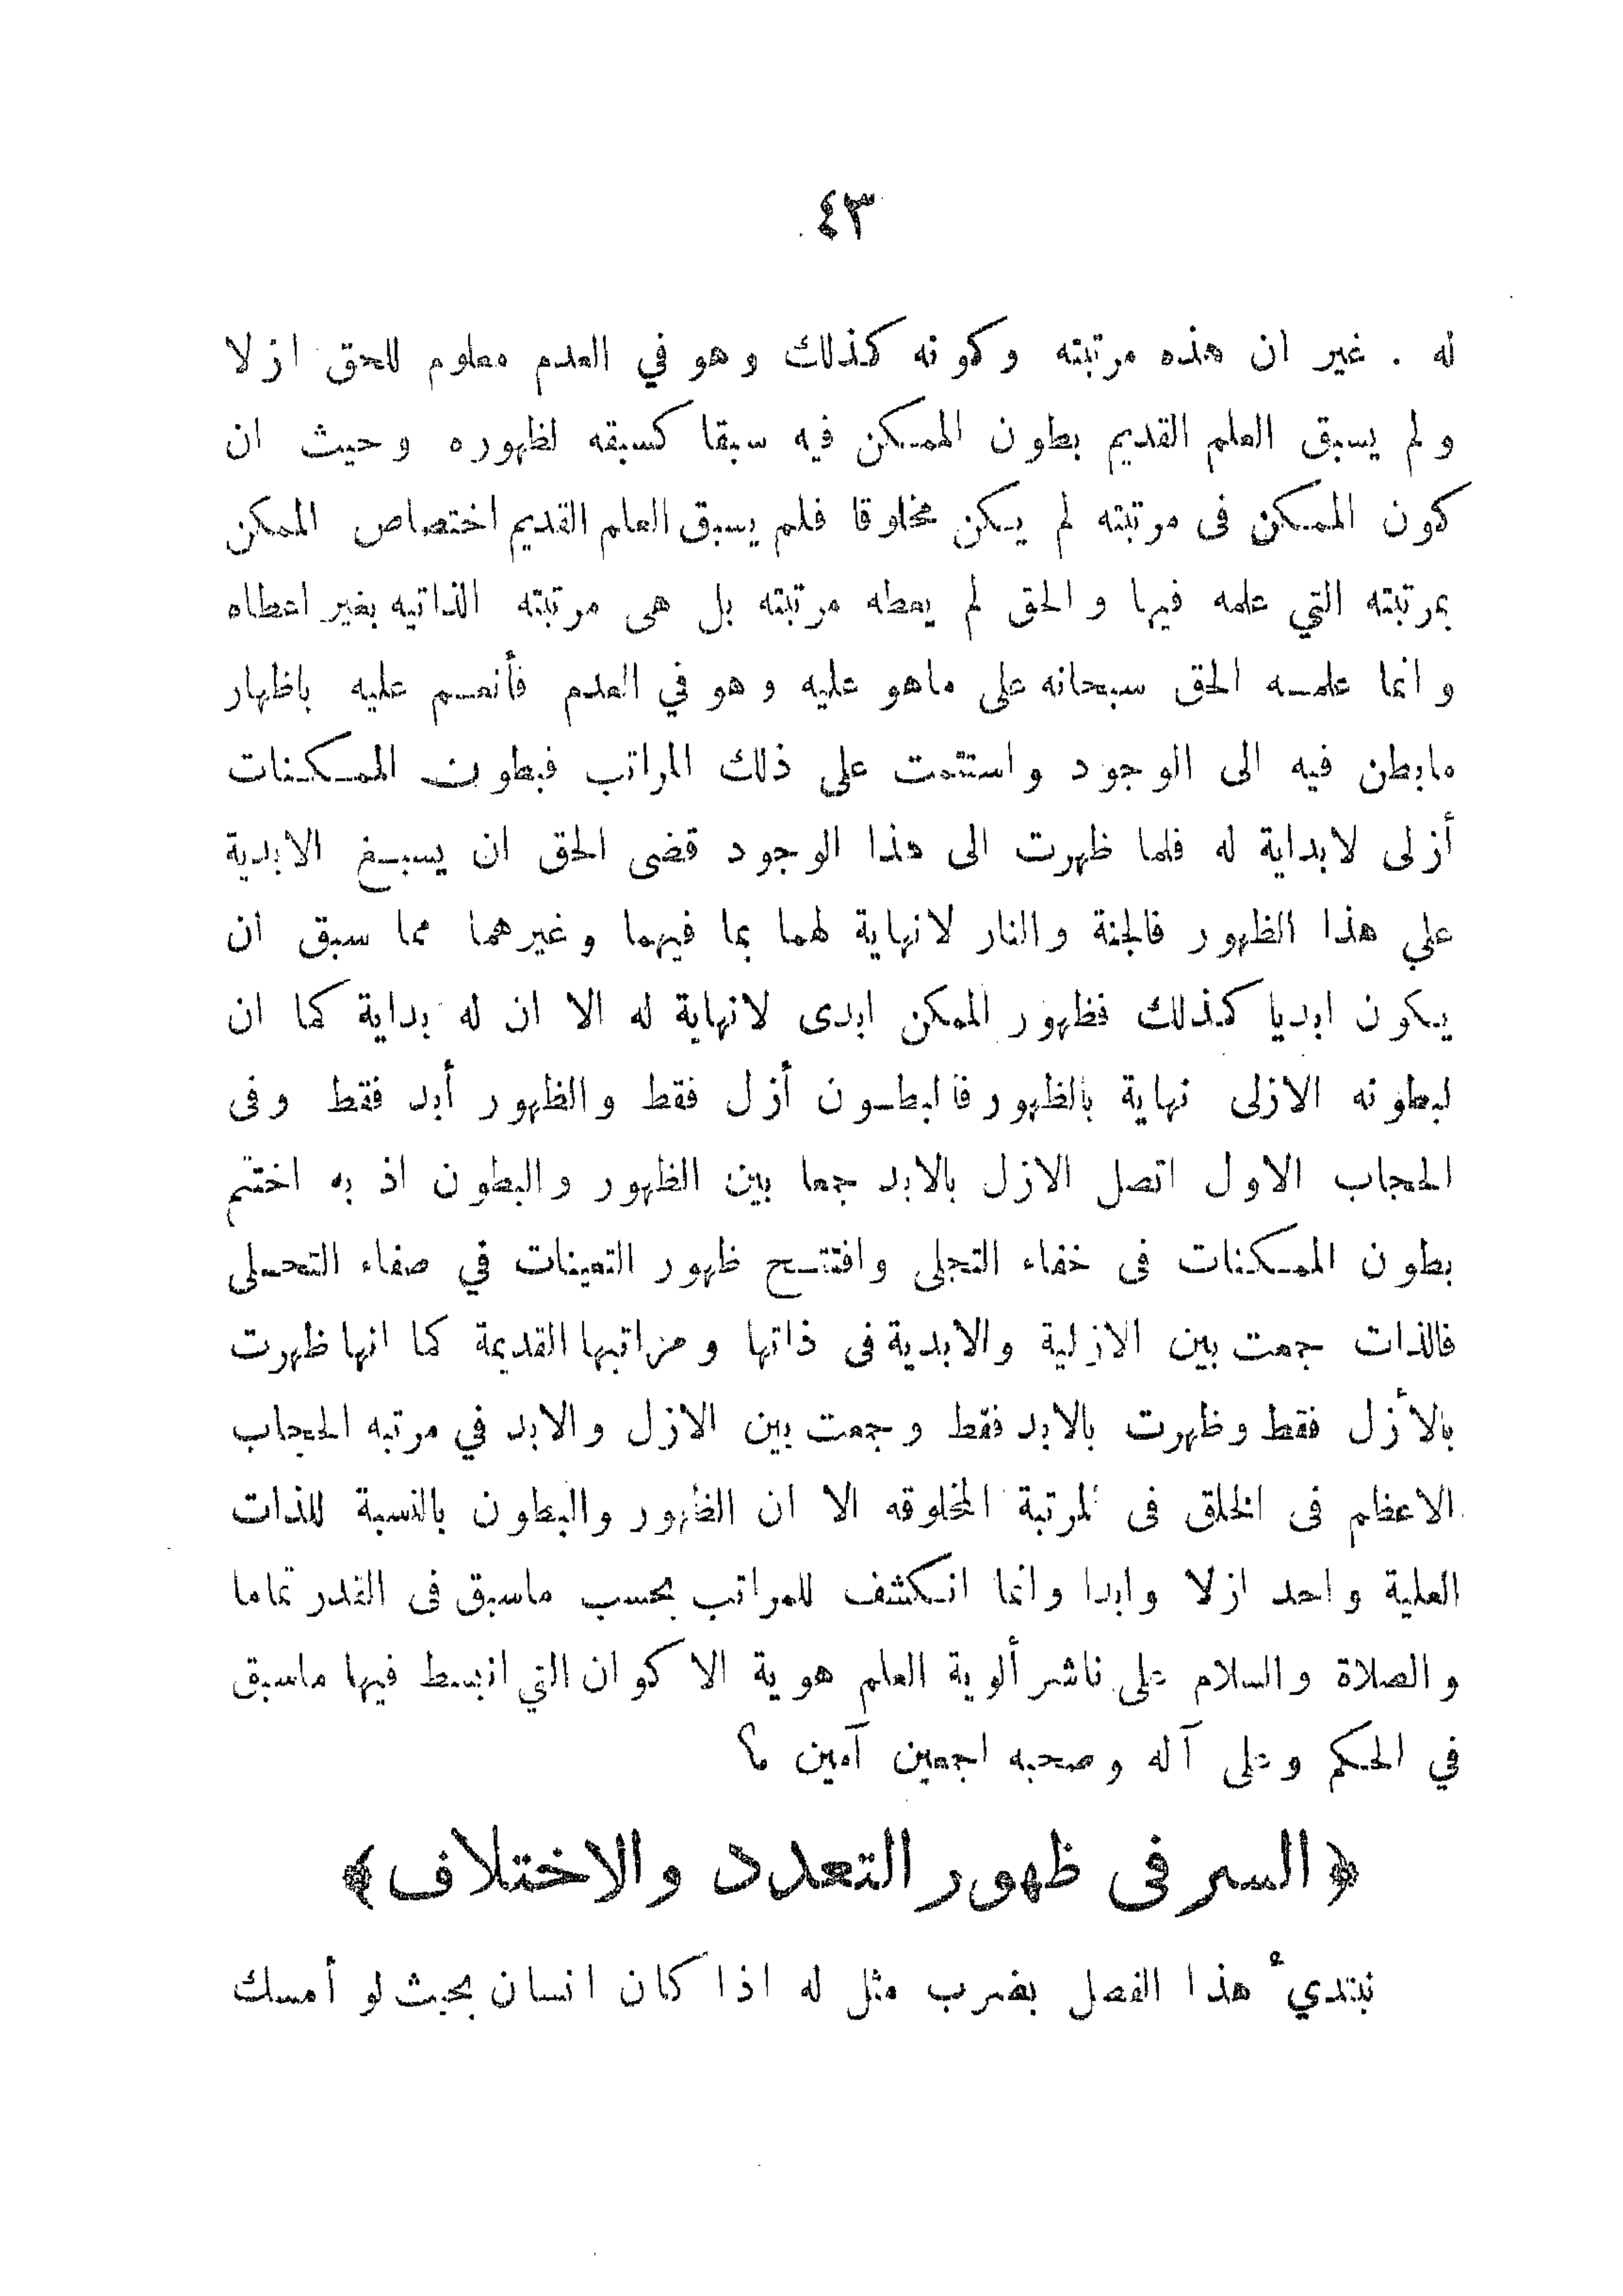 ٤٣
له . غير ان هذه مرتبته وكونه كذلك وهو في العدم معلوم للحق ازلا
ولم يسبق العلم القديم بطون الممكن فيه سبقا كسبقه لظهوره وحيث ان
كون الممكن فى مرتبته لم يكن مخلوقا فلم يسبق العلم القديم اختصاص الممكن
بمرتبته التي علمه فيها والحق لم يعطه مرتبته بل هى مرتبته الذاتيه بغير اعطاه
وانما علمه الحق سبحانه على ماهو عليه وهو في العدم فأنعم عليه باظهار
مابطن فيه الى الوجود واستتمت على ذلك المراتب فبطون الممكنات
أزلى لابداية له فلما ظهرت الى هذا الوجود قضى الحق ان يسبغ الابدية
علي هذا الظهور فالجنة والنار لانهاية لهما بما فيهما وغيرهما مما سبق ان
يكون ابديا كذلك فظهور الممكن ابدى لانهاية له الا ان له بداية كما ان
لبطونه الازلى نهاية بالظهور فالبطون أزل فقط والظهور أبد فقط وفى
الحجاب الاول اتصل الازل بالابد جمعا بين الظهور والبطون اذ به اختتم
بطون الممكنات فى خفاء التجلى وافتتح ظهور التعينات في صفاء التحلى
فالذات جمعت بين الازلية والابدية فى ذاتها ومراتبها القديمة كما انها ظهرت
بالأزل فقط وظهرت بالابد فقط وجمعت بين الازل والابد في مرتبه الحجاب
الاعظم فى الخلق فى المرتبة المخلوقه الا ان الظهور والبطون بالنسبة للذات
العلية واحد ازلا وابدا وانما انكشف للمراتب بحسب ماسبق فى القدر تماما
والصلاة والسلام على ناشر ألوية العلم هوية الاكوان التي انبسط فيها ماسبق
في الحكم وعلى آله وصحبه اجمعين آمين
﴿ السر فى ظهور التعدد والاختلاف ﴾
نبتديء هذا الفصل بضرب مثل له اذا كان انسان بحيث لو أمسك